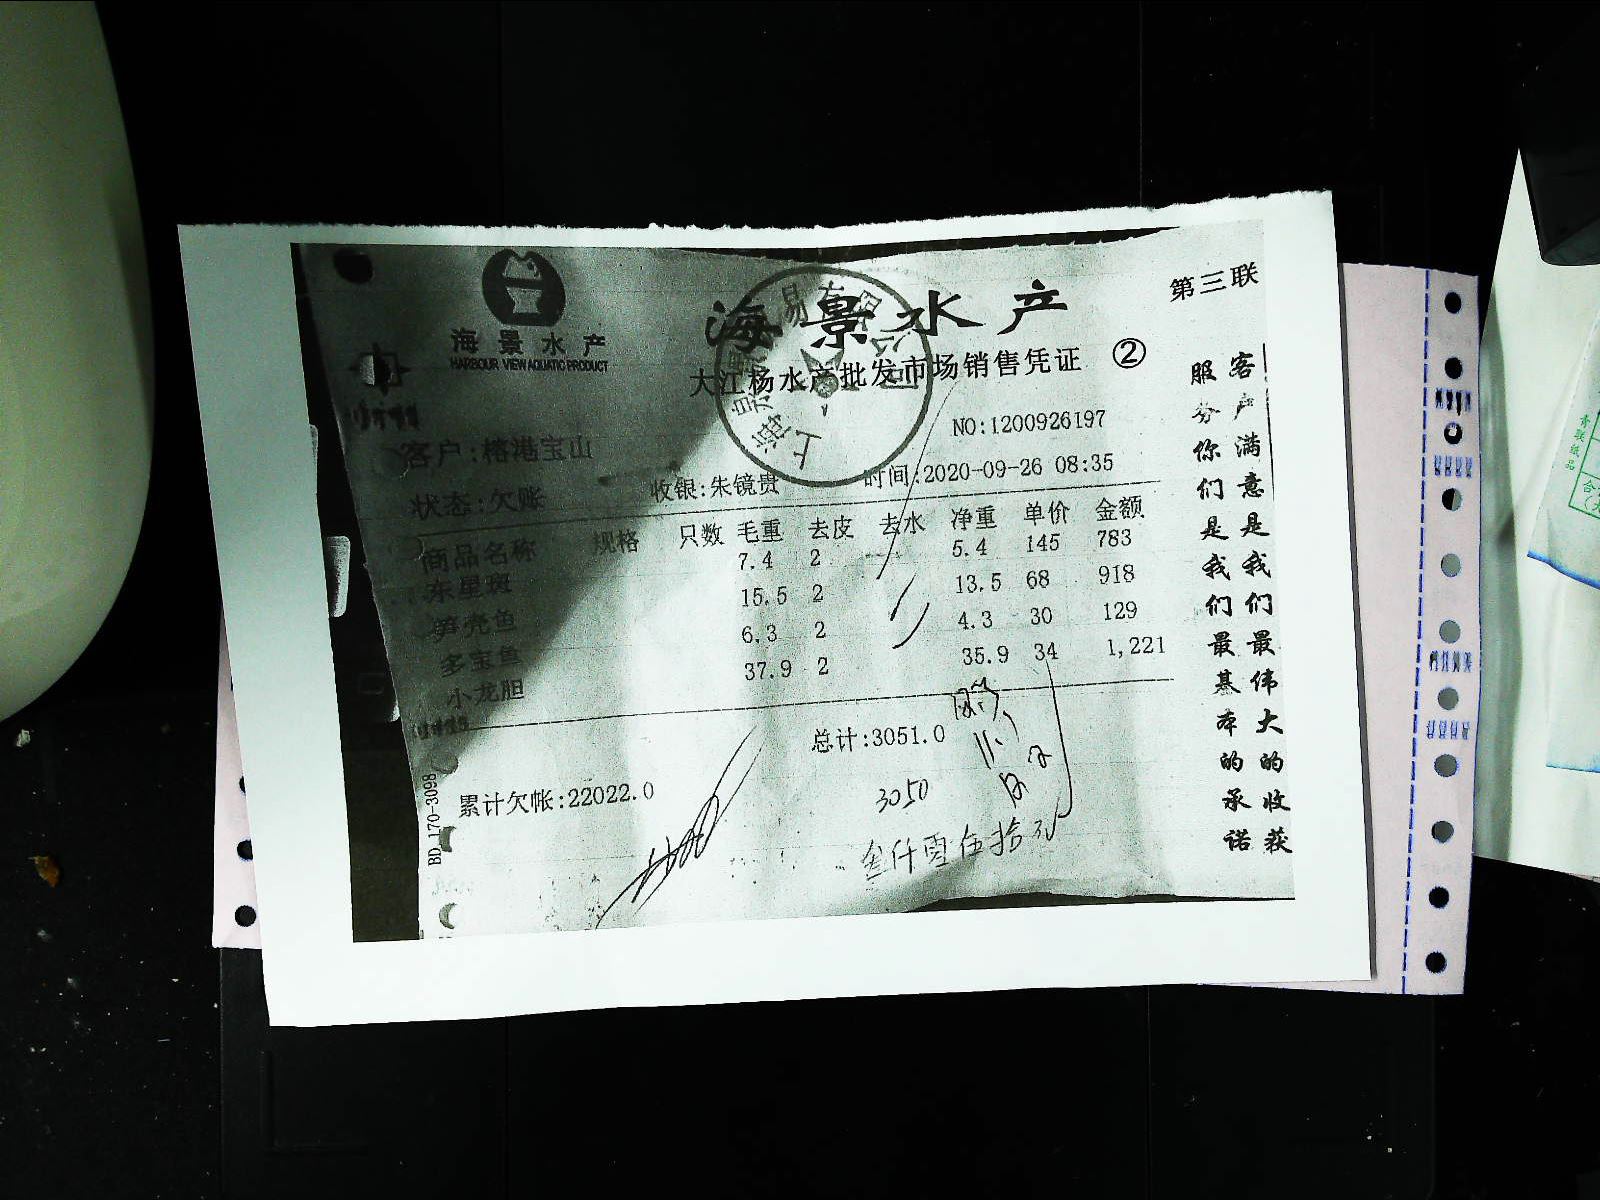 第三联
海景水产
海景水产
HARBOUR VIEW AQUATIC PRODUCT
大江杨水产批发市场销售凭证 ②
NO:1200926197
客户:榕港宝山
状态:欠账 收银:朱镜贵 时间:2020-09-26 08:35
商品名称 规格 只数 毛重 去皮 去水 净重 单价 金额
东星斑 7.4 2 5.4 145 783
笋壳鱼 15.5 2 13.5 68 918
多宝鱼 6.3 2 4.3 30 129
小龙胆 37.9 2 35.9 34 1,221
总计:3051.0
累计欠帐:22022.0
3050
叁仟零伍拾元
BD 170-3098
客户满意是我们最伟大的收获
服务你们是我们最基本的承诺